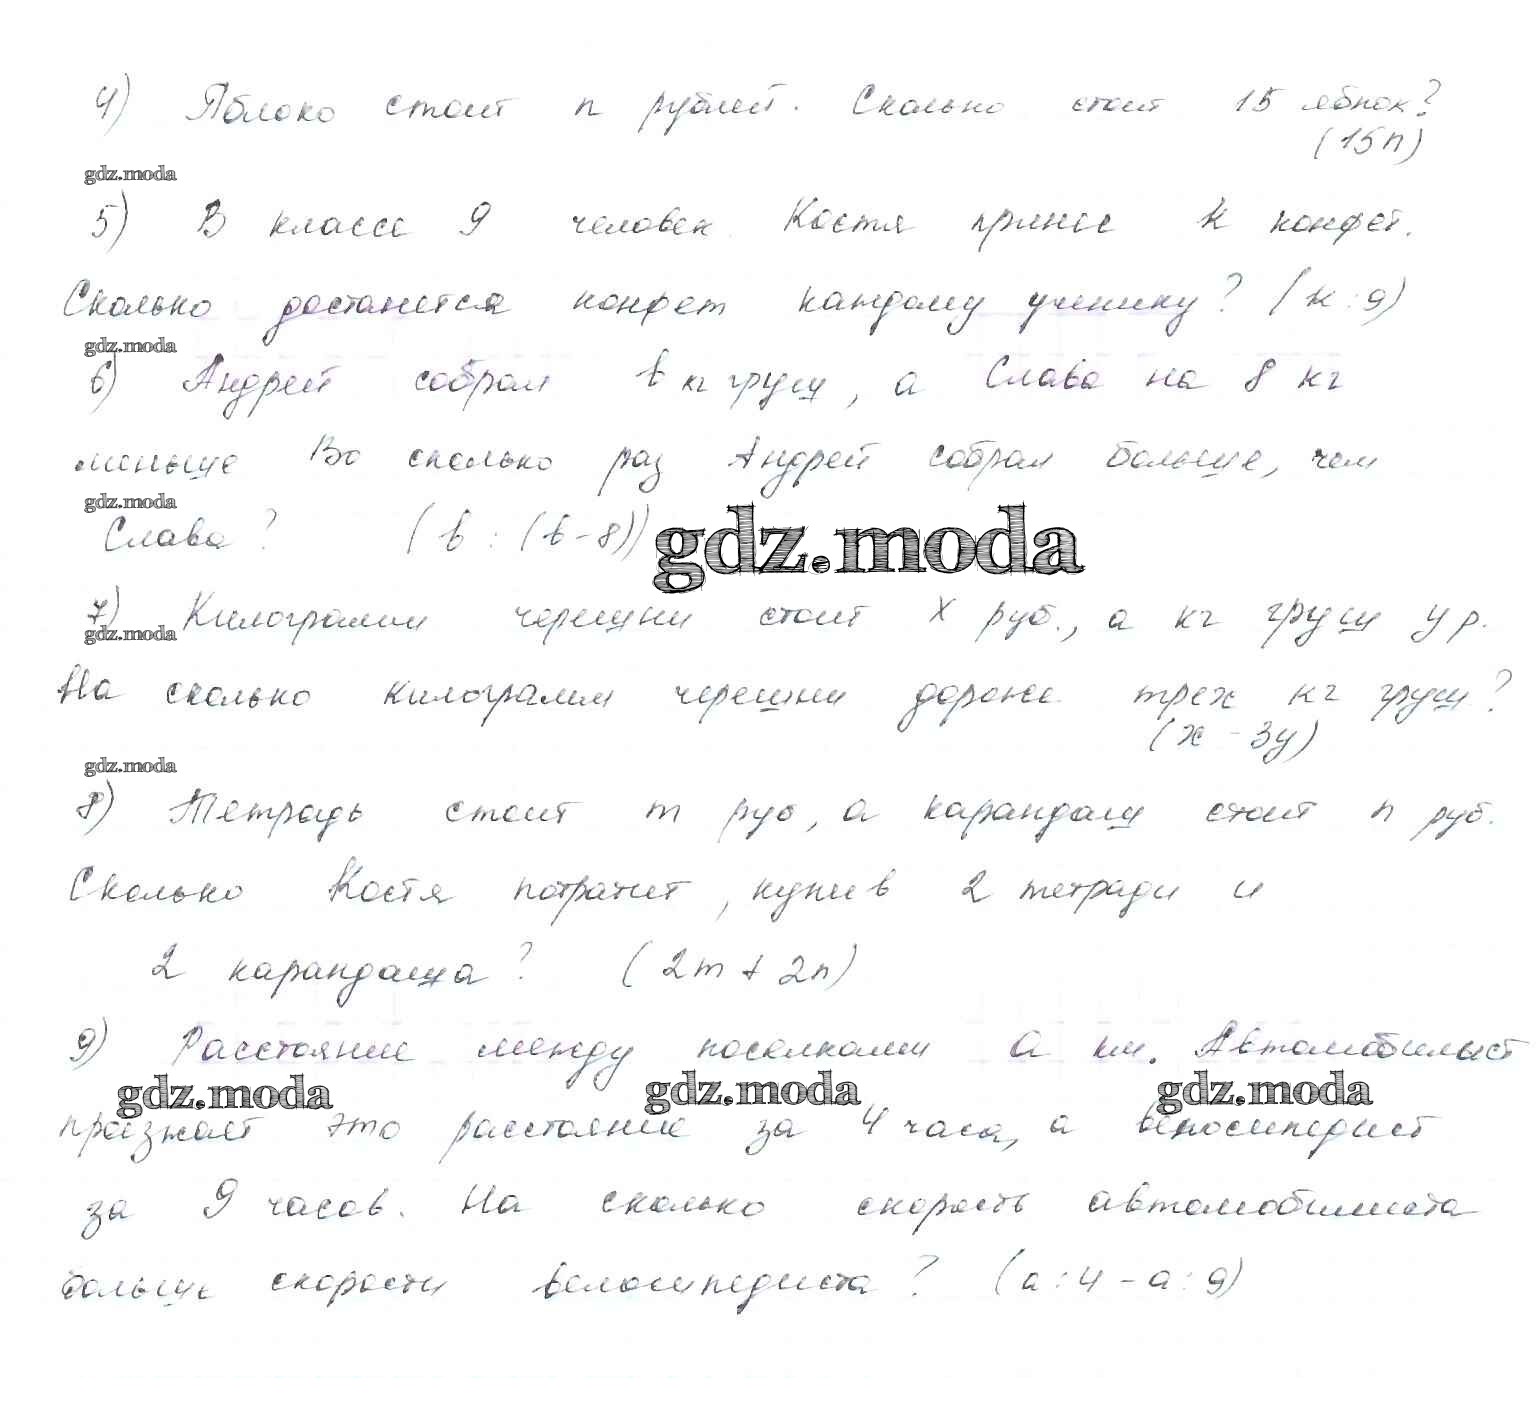 4) Яблоко стоит n рублей. Сколько стоит 15 яблок?
(15n)
gdz.moda
5) В классе 9 человек. Костя принес k конфет.
Сколько достанется конфет каждому ученику? (k : 9)
gdz.moda
6) Андрей собрал b кг груш, а Слава на 8 кг
меньше Во сколько раз Андрей собрал больше, чем
gdz.moda
Слава? (b : (b - 8))
gdz.moda
7) Килограмм черешни стоит x руб., а кг груш y р.
gdz.moda
На сколько килограмм черешни дороже трех кг груш?
(x - 3y)
gdz.moda
8) Тетрадь стоит m руб, а карандаш стоит n руб.
Сколько Костя потратит, купив 2 тетради и
2 карандаша? (2m + 2n)
9) Расстояние между поселками a км. Автомобилист
gdz.moda gdz.moda gdz.moda
проезжает это расстояние за 4 часа, а велосипедист
за 9 часов. На сколько скорость автомобилиста
больше скорости велосипедиста? (a : 4 - a : 9)